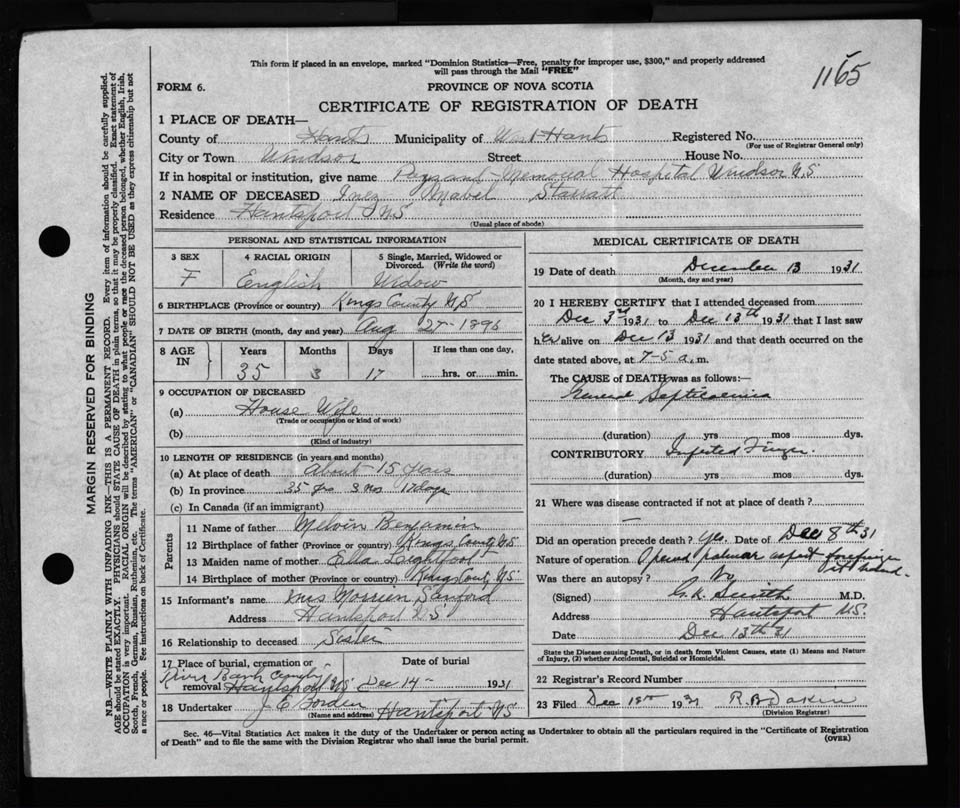 This form if placed in an envelope, marked "Dominion Statistics—Free, penalty for improper use, $300," and properly addressed
will pass through the Mail "FREE"
1165
FORM 6.
PROVINCE OF NOVA SCOTIA
CERTIFICATE OF REGISTRATION OF DEATH
1 PLACE OF DEATH—
County of Hants Municipality of West Hants Registered No.
(For use of Registrar General only)
City or Town Windsor Street House No.
If in hospital or institution, give name Payzant Memorial Hospital Windsor N.S
2 NAME OF DECEASED Inez Mabel Starratt
Residence Hantsport N S
(Usual place of abode)
PERSONAL AND STATISTICAL INFORMATION
3 SEX F
4 RACIAL ORIGIN English
5 Single, Married, Widowed or Divorced. (Write the word) Widow
6 BIRTHPLACE (Province or country) Kings County N.S
7 DATE OF BIRTH (month, day and year) Aug 27-1896
8 AGE IN Years 35 Months 3 Days 17 If less than one day, hrs. or min.
9 OCCUPATION OF DECEASED
(a) House Wife
(Trade or occupation or kind of work)
(b)
(Kind of industry)
10 LENGTH OF RESIDENCE (in years and months)
(a) At place of death About 15 years
(b) In province 35 yrs 3 mos 17 days
(c) In Canada (if an immigrant)
Parents
11 Name of father Melvin Benjamin
12 Birthplace of father (Province or country) Kings County N.S
13 Maiden name of mother Ella Lightfoot
14 Birthplace of mother (Province or country) Kings Count N.S
15 Informant's name Morrien Sanford
Address Hantsport N.S
16 Relationship to deceased Sister
17 Place of burial, cremation or removal River Bank Hantsport N S
Date of burial Dec 14- 1931
18 Undertaker J E Borden Hantsport N S
(Name and address)
MEDICAL CERTIFICATE OF DEATH
19 Date of death December 13 1931
(Month, day and year)
20 I HEREBY CERTIFY that I attended deceased from
Dec 3rd 1931 to Dec 13th 1931 that I last saw
her alive on Dec 13 1931 and that death occurred on the
date stated above, at 7-5 a.m.
The CAUSE of DEATH was as follows:—
General Septicaemia
(duration) yrs mos dys.
CONTRIBUTORY Infected Finger.
(duration) yrs. mos. dys.
21 Where was disease contracted if not at place of death?
Did an operation precede death? Yes. Date of Dec 8th 31
Nature of operation Opened palmar aspect forefinger
Was there an autopsy? No
(Signed) G.K. Smith M.D.
Address Hantsport N.S.
Date Dec 13th 31
State the Disease causing Death, or in death from Violent Causes, state (1) Means and Nature
of Injury, (2) whether Accidental, Suicidal or Homicidal.
22 Registrar's Record Number
23 Filed Dec 1931 R.B. Dakin
(Division Registrar)
Sec. 46—Vital Statistics Act makes it the duty of the Undertaker or person acting as Undertaker to obtain all the particulars required in the "Certificate of Registration
of Death" and to file the same with the Division Registrar who shall issue the burial permit.
(OVER)
MARGIN RESERVED FOR BINDING
N.B.—WRITE PLAINLY WITH UNFADING INK—THIS IS A PERMANENT RECORD. Every item of information should be carefully supplied.
AGE should be stated EXACTLY. PHYSICIANS should STATE CAUSE OF DEATH in plain terms, so that it may be properly classified. Exact statement of
OCCUPATION is very important. RACIAL ORIGIN will be described by stating to what people or race the deceased person belonged, whether English, Irish,
Scotch, French, German, Russian, Ruthenian, etc. The terms "AMERICAN" or "CANADIAN" SHOULD NOT BE USED as they express citizenship but not
a race or people. Fee instructions on back of Certificate.